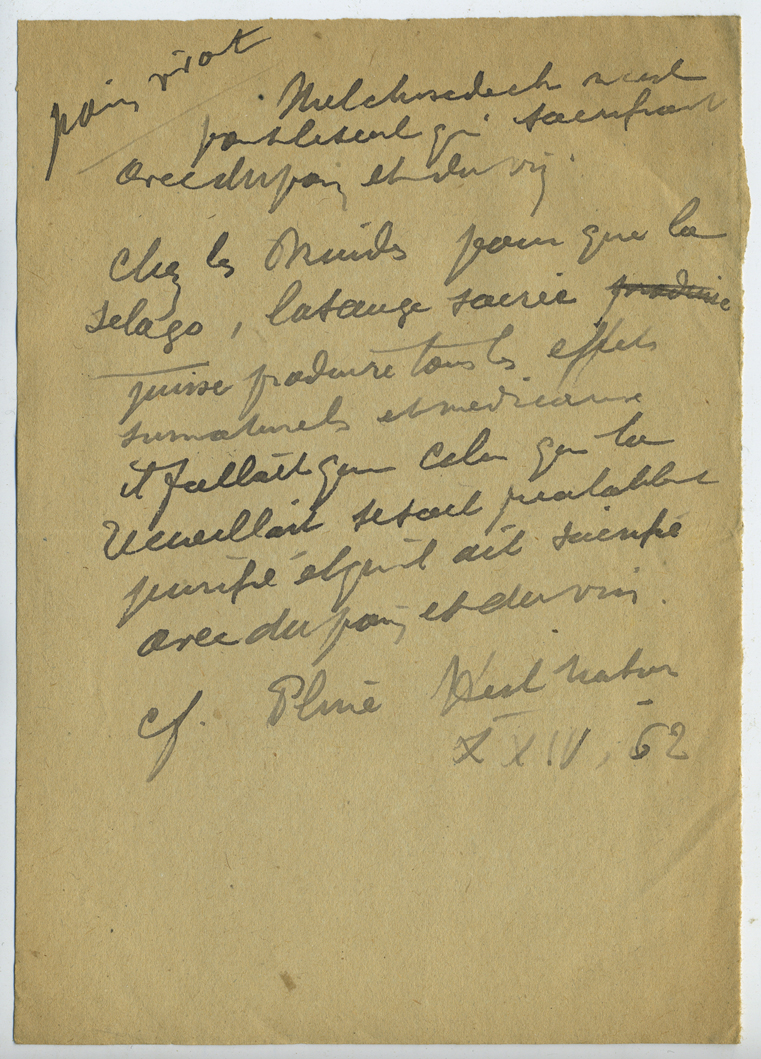 pain vivot
Melchisedech n'est
pas le seul qui sacrifiait
avec du pain et du vin.
Chez les Druides pour que la
Selago, la sauge sacrée produise
puisse produire tous les effets
surnaturels et médicaux
il fallait que celui qui la
recueillait se soit préalablemt
purifié et qu'il ait sacrifié
avec du pain et du vin.
cf. Pline Hist natur
XXIV, 62